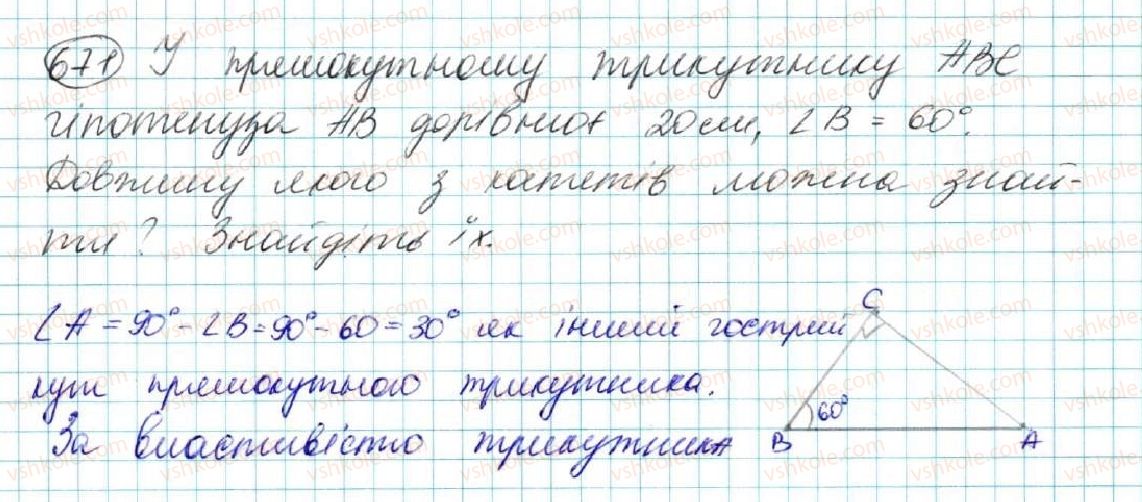 671 У прямокутному трикутнику ABC
гіпотенуза AB дорівнює 20 см, ∠B = 60°.
Довжину якого з катетів можна знай-
ти? Знайдіть їх.
∠A = 90° - ∠B = 90° - 60 = 30° як інший гострий
кут прямокутного трикутника.
За властивістю трикутника
C
60°
B
A
vshkole.com